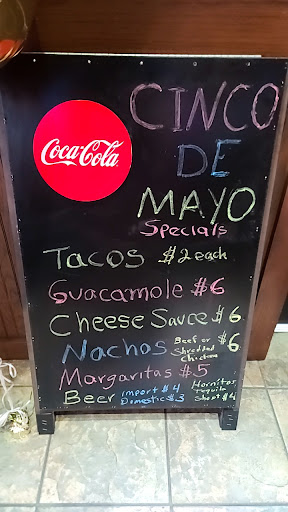 Coca-Cola
CINCO
DE
MAYO
Specials
Tacos $2 each
Guacamole $6
Cheese Sauce $6
Nachos Beef or Shredded Chicken $6
Margaritas $5
Beer Import $4 Domestic $3
Hornitos Tequila Shot $4